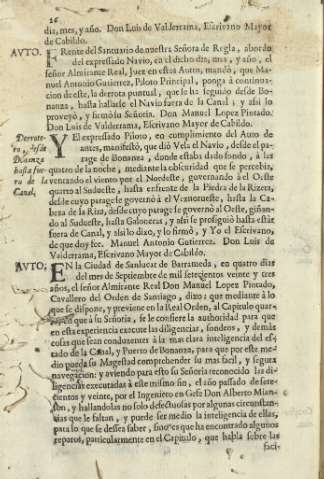 26
dia, mes, y año. Don Luis de Valderrama, Escrivano Mayor
de Cabildo.
AVTO.
FRente del Santuario de nuestra Señora de Regla, abordo
del expressado Navio, en el dicho dia, mes, y año, el
señor Almirante Real, Juez en estos Autos, mandò, que Ma-
nuel Antonio Gutierrez, Piloto Principal, ponga à continua-
cion de este, la derrota puntual, que se ha seguido desde Bo-
nanza, hasta hallarse el Navio fuera de la Canal; y assi lo
proveyò, y firmò su Señoria. Don Manuel Lopez Pintado.
Don Luis de Valderrama, Escrivano Mayor de Cabildo.
Derrote-
ro, desde
Bonanza
hasta fue-
ra de la
Canal.
Y El expressado Piloto, en cumplimiento del Auto de
antes, manifestò, que diò Vela el Navio, desde el pa-
rage de Bonanza, donde estaba dado fondo, à las
quatro de la noche, mediante la obscuridad que se percebia,
venteando el viento por el Nordeste, governando à el Oeste
quarto al Sudueste, hasta enfrente de la Piedra de la Rizera,
desde cuyo parage se governò à Vesnorueste, hasta la Ca-
beza de la Riza, desde cuyo parage se governò al Oeste, giñan-
do al Sudueste, hasta Galoneras, y assi se prosiguiò hasta estàr
fuera de Canal, y assi lo dixo, y lo firmò, y Yo el Escrivano,
de que doy fee. Manuel Antonio Gutierrez. Don Luis de
Valderrama, Escrivano Mayor de Cabildo.
AVTO,
EN la Ciudad de Sanlucar de Barrameda, en quatro dias
del mes de Septiembre de mil setecientos veinte y tres
años, el señor Almirante Real Don Manuel Lopez Pintado,
Cavallero del Orden de Santiago, dixo: que mediante à lo
que se dispone, y previene en la Real Orden, al Capitulo quar-
que à su Señoria, se le confiere la authoridad para que
en esta experiencia execute las diligencias, sondeos, y demàs
cosas que sean conducentes à la mas clara inteligencia del es-
tado de la Canal, y Puerto de Bonanza, para que por este me-
dio pueda su Magestad comprehender su mas facil, y segura
navegacion: y aviendo para esto su Señoria reconocido las di-
ligencias executadas à este mismo fin, el año passado de sete-
cientos y veinte, por el Ingeniero en Gefe Don Alberto Mian-
son, y hallandolas no solo defectuosas por algunas circunstan-
cias que le faltan, y puede ser medio la inteligencia de ellas,
para lo que se dessea saber, sino es que ha encontrado algunos
reparos, particularmente en el Capitulo, que habla sobre las
faci-